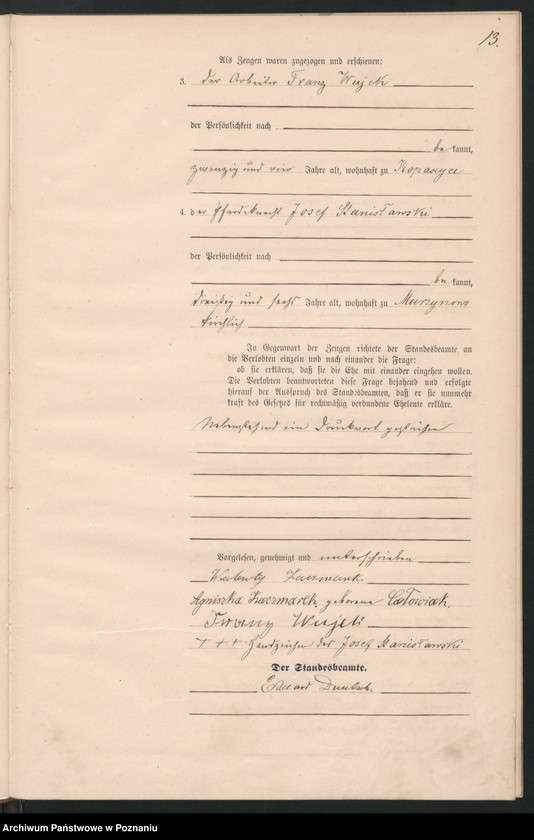 13.
Als Zeugen waren zugezogen und erschienen:
3. der Arbeiter Franz Wujek
der Persönlichkeit nach
be kannt,
zwanzig und vier Jahre alt, wohnhaft zu
4. der Pferdeknecht Josef Stanisławski
der Persönlichkeit nach
be kannt,
dreißig und sechs Jahre alt, wohnhaft zu Murzynowo
kirchlich
In Gegenwart der Zeugen richtete der Standesbeamte an
die Verlobten einzeln und nach einander die Frage:
ob sie erklären, daß sie die Ehe mit einander eingehen wollen.
Die Verlobten beantworteten diese Frage bejahend und erfolgte
hierauf der Ausspruch des Standesbeamten, daß er sie nunmehr
kraft des Gesetzes für rechtmäßig verbundene Eheleute erkläre.
Nebenstehend ein Druckwort gestrichen
Vorgelesen, genehmigt und unterschrieben
Walenty Kaczmarek
Agniszka Kaczmarek, geborene Całowiak.
Franz Wujek
+ + + Handzeichen des Josef Stanisławski
Der Standesbeamte.
Eduard
Archiwum Państwowe w Poznaniu